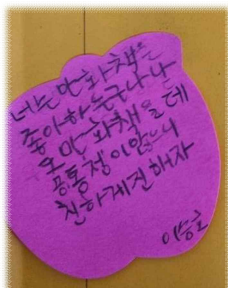 너는 만화책을
좋아하는구나 나
도 만화책을
공통점이 많으니
친하게 진해자
이승호